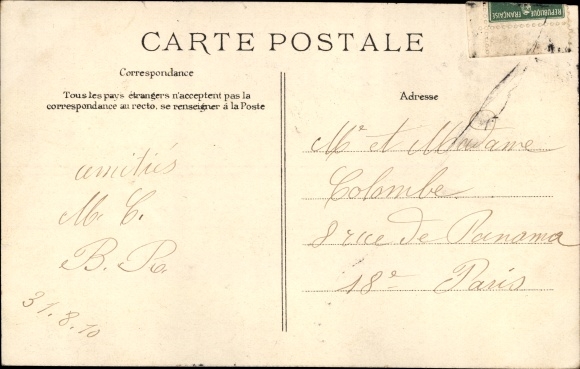 RÉPUBLIQUE FRANÇAISE
CARTE POSTALE
Correspondance
Tous les pays étrangers n'acceptent pas la
correspondance au recto, se renseigner à la Poste
Adresse
amitiés
M. C.
B. R.
31.8.10
Mr et Madame
Colombe
8 rue de Panama
18e Paris